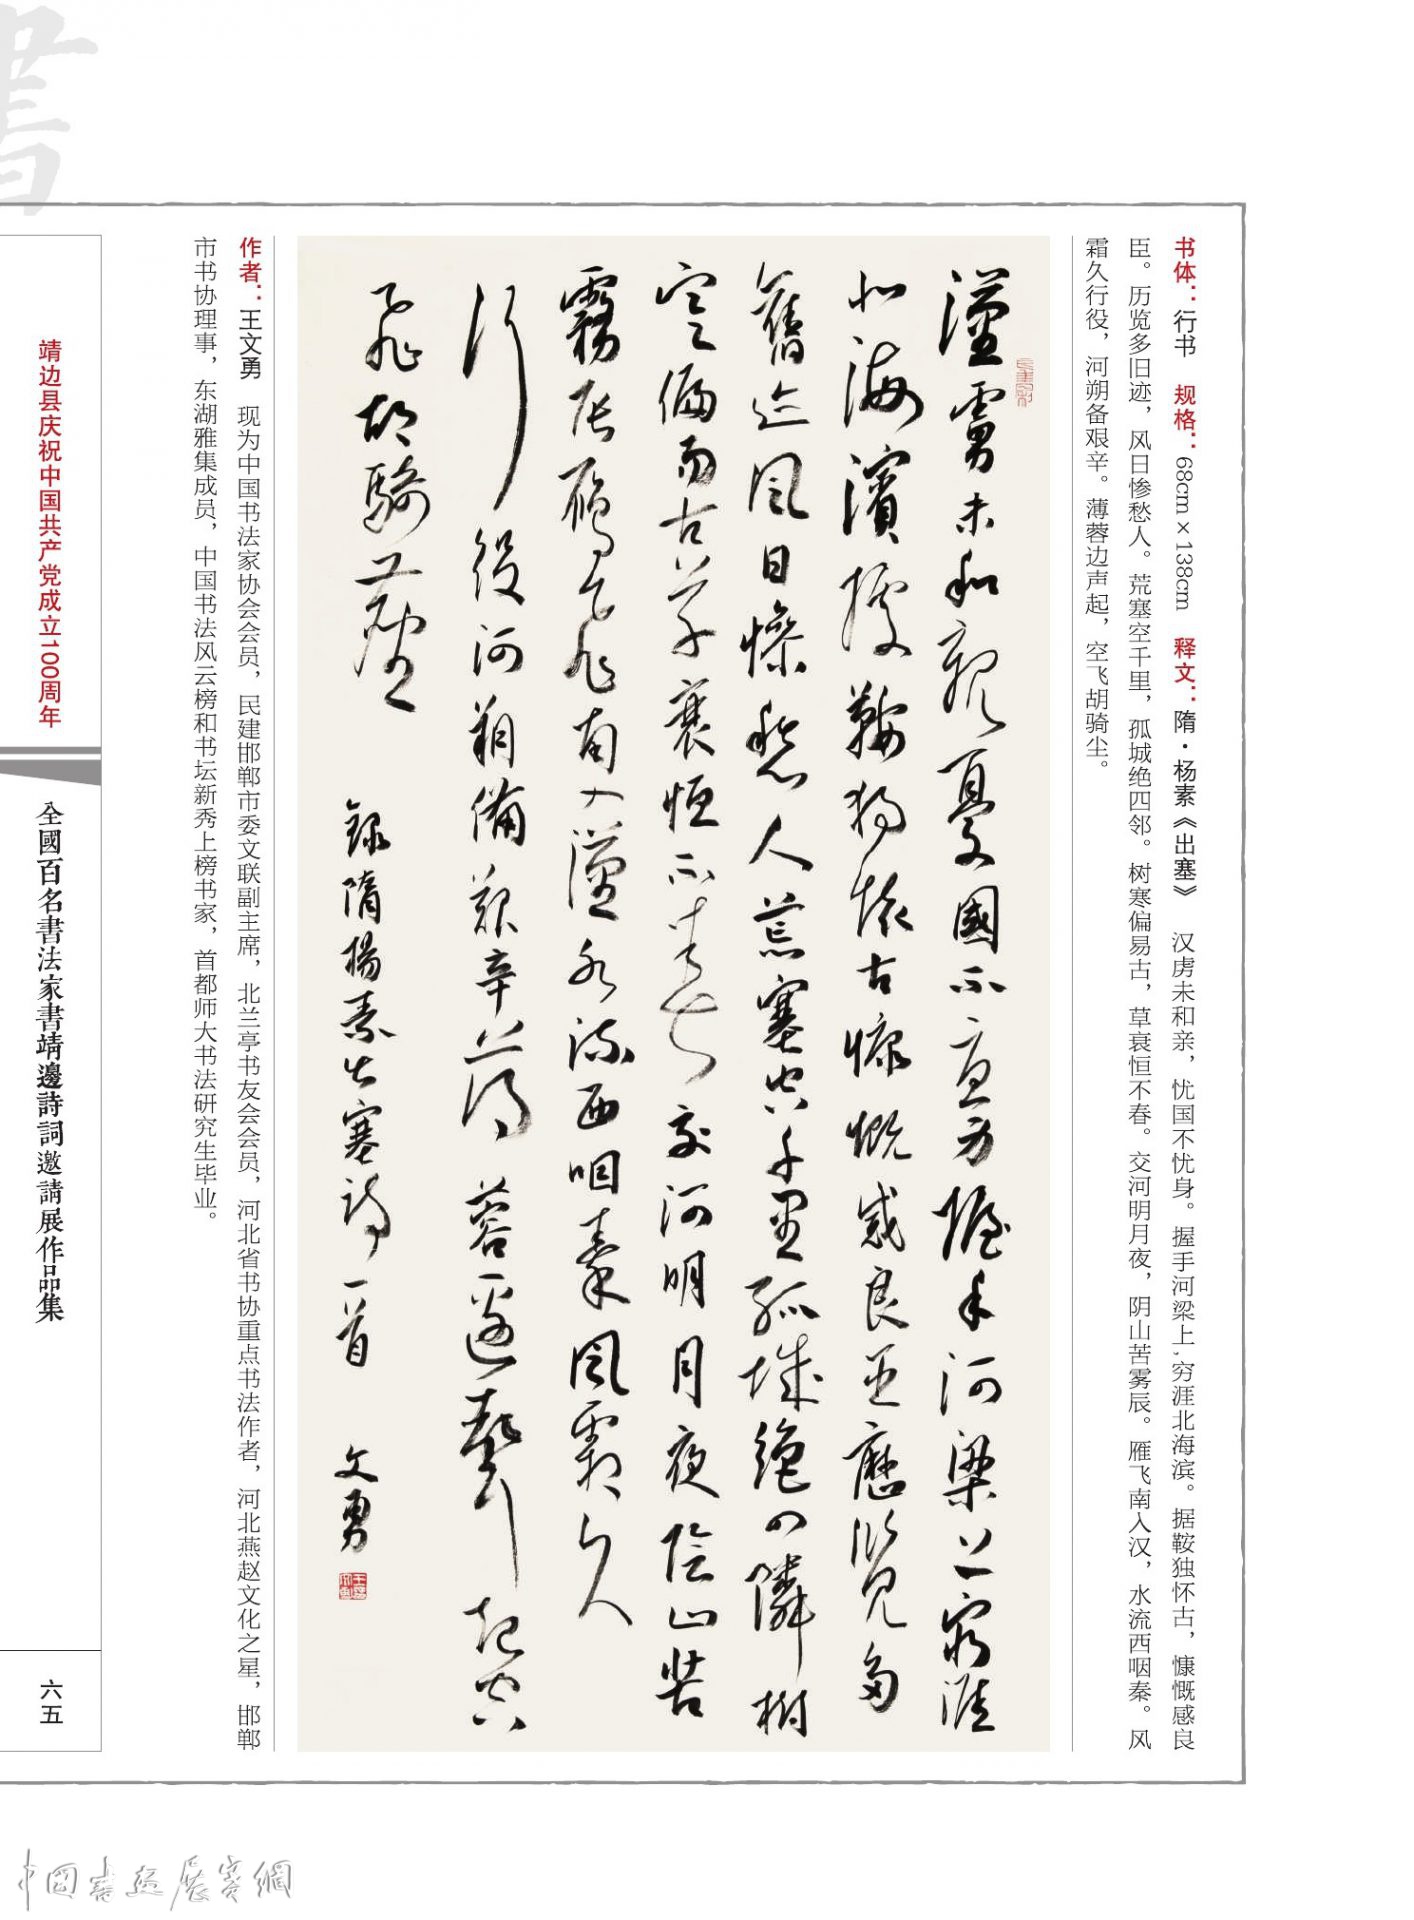 书体：行书　规格：68cm×138cm　释文：隋·杨素《出塞》　汉虏未和亲，忧国不忧身。握手河梁上，穷涯北海滨。据鞍独怀古，慷慨感良
臣。历览多旧迹，风日惨愁人。荒塞空千里，孤城绝四邻。树寒偏易古，草衰恒不春。交河明月夜，阴山苦雾辰。雁飞南入汉，水流西咽秦。风
霜久行役，河朔备艰辛。薄蓉边声起，空飞胡骑尘。
漢虜未和親憂國不憂身握手河梁上窮涯
北海濱據鞍獨懷古慷慨感良臣歷覽多
舊迹風日慘愁人荒塞空千里孤城絕四鄰樹
寒偏易古草衰恒不春交河明月夜陰山苦
霧辰雁飛南入漢水流西咽秦風霜久
行役河朔備艱辛薄蓉邊聲起空
飛胡騎塵
錄隋楊素出塞詩一首　文勇
作者：王文勇　现为中国书法家协会会员，民建邯郸市委文联副主席，北兰亭书友会会员，河北省书协重点书法作者，河北燕赵文化之星，邯郸
市书协理事，东湖雅集成员，中国书法风云榜和书坛新秀上榜书家，首都师大书法研究生毕业。
書
靖边县庆祝中国共产党成立100周年
全國百名書法家書靖邊詩詞邀請展作品集
六五
中國書畫展賽網